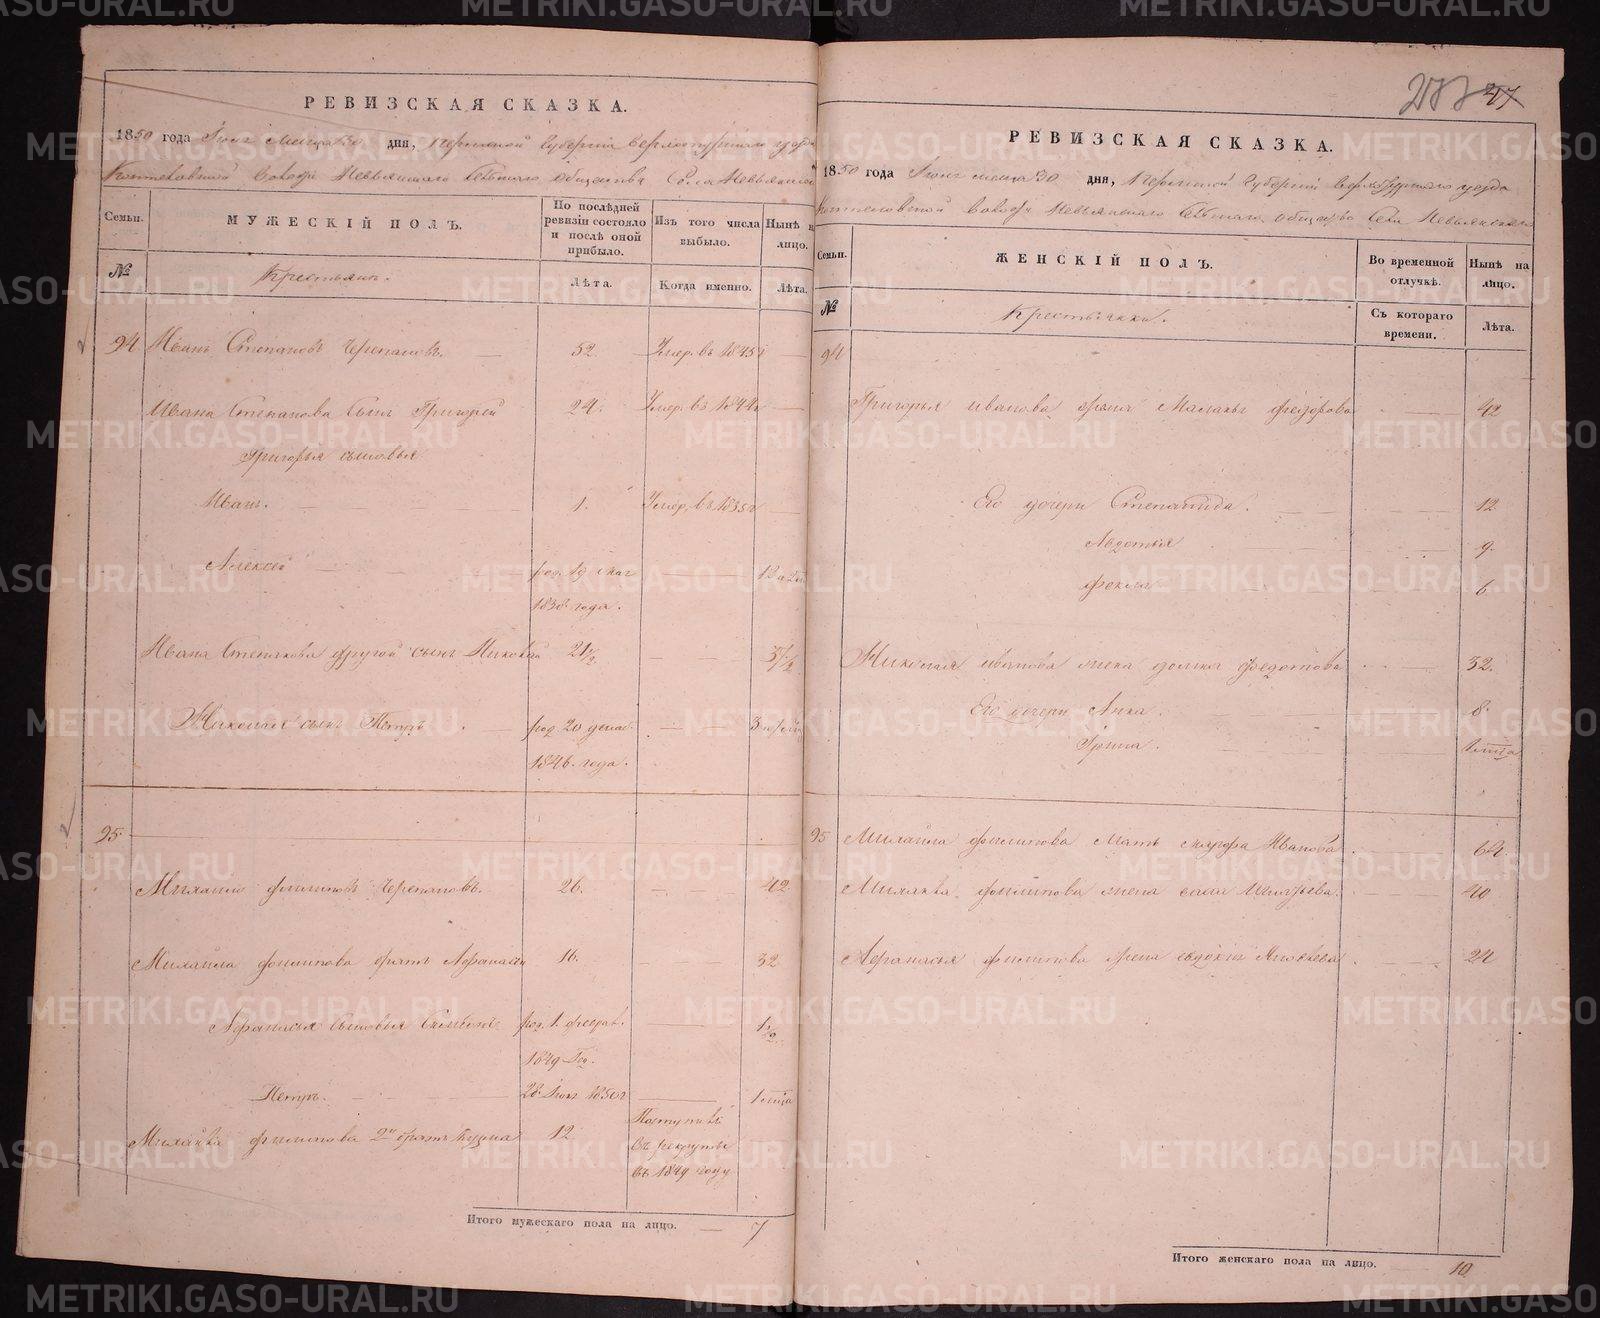 РЕВИЗСКАЯ СКАЗКА.
1850 года Июля месяца 30 дня, Пермской Губернии Верхотурского уезда
Коптеловской волости Невьянского сельского общества Села Невьянского
Семьи. МУЖЕСКІЙ ПОЛЪ. По послѣдней ревизіи состояло и послѣ оной прибыло. Изъ того числа выбыло. Нынѣ на лицо.
№ Крестьяне. Лѣта. Когда именно. Лѣта.
94 Иванъ Степановъ Черепановъ. 52 Умер. въ 1845г
Ивана Степанова Сынъ Григорей 24. Умер. въ 1844г
Григорья сыновья
Иванъ. 1. Умер. въ 1835г
Алексей род. 19 мая 12
1838 года.
Ивана Степанова другой сынъ Николай 21½ 37½
Николая сынъ Петръ род 20 декаб. 3
1846 года.
95
Михайло Филиповъ Черепановъ. 26. 42
Михайла Филипова братъ Афанасей 16. 32
Афанасья Сыновья род. 1. феврал. 1½
1849 Год.
Петръ. 28 Июня 1850г 1 месяца
Михайла Филипова 2й братъ Кузма 12 Поступилъ
въ рекруты
въ 1849 году
Итого мужескаго пола на лицо. 7
283 47
РЕВИЗСКАЯ СКАЗКА.
1850 года Июля месяца 30 дня, Пермской Губернии Верхотурского уезда
Коптеловской волости Невьянского Сельского общества Села Невьянского
Семьи. ЖЕНСКІЙ ПОЛЪ. Во временной отлучкѣ. Нынѣ на лицо.
№ Крестьянки. Съ котораго времени. Лѣта.
94
Григорья Иванова жена Маланья Федорова 42
Его дочери Степанида. 12
Авдотья 9
Фекла 6
Николая Иванова жена Федотова 32.
Его дочери Анна. 8
Ирина. 1 месяца
95 Михайла Филипова Мать Иванова 64
Михайла Филипова жена 40
Афанасья Филипова жена Евдокия Яковлева 24
Итого женскаго пола на лицо. 10
METRIKI.GASO-URAL.RU